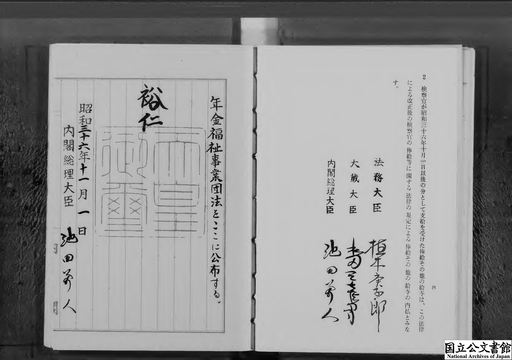 2 検察官が昭和三十六年十月一日以後の分として支給を受けた俸給その他の給与は、この法律
による改正後の検察官の俸給等に関する法律の規定による俸給その他の給与の内払とみな
す。
法務大臣 植木庚子郎
大蔵大臣
内閣総理大臣 池田勇人
年金福祉事業団法をここに公布する。
裕仁
天皇御璽
昭和三十六年十一月一日
内閣総理大臣 池田勇人
国立公文書館
National Archives of Japan